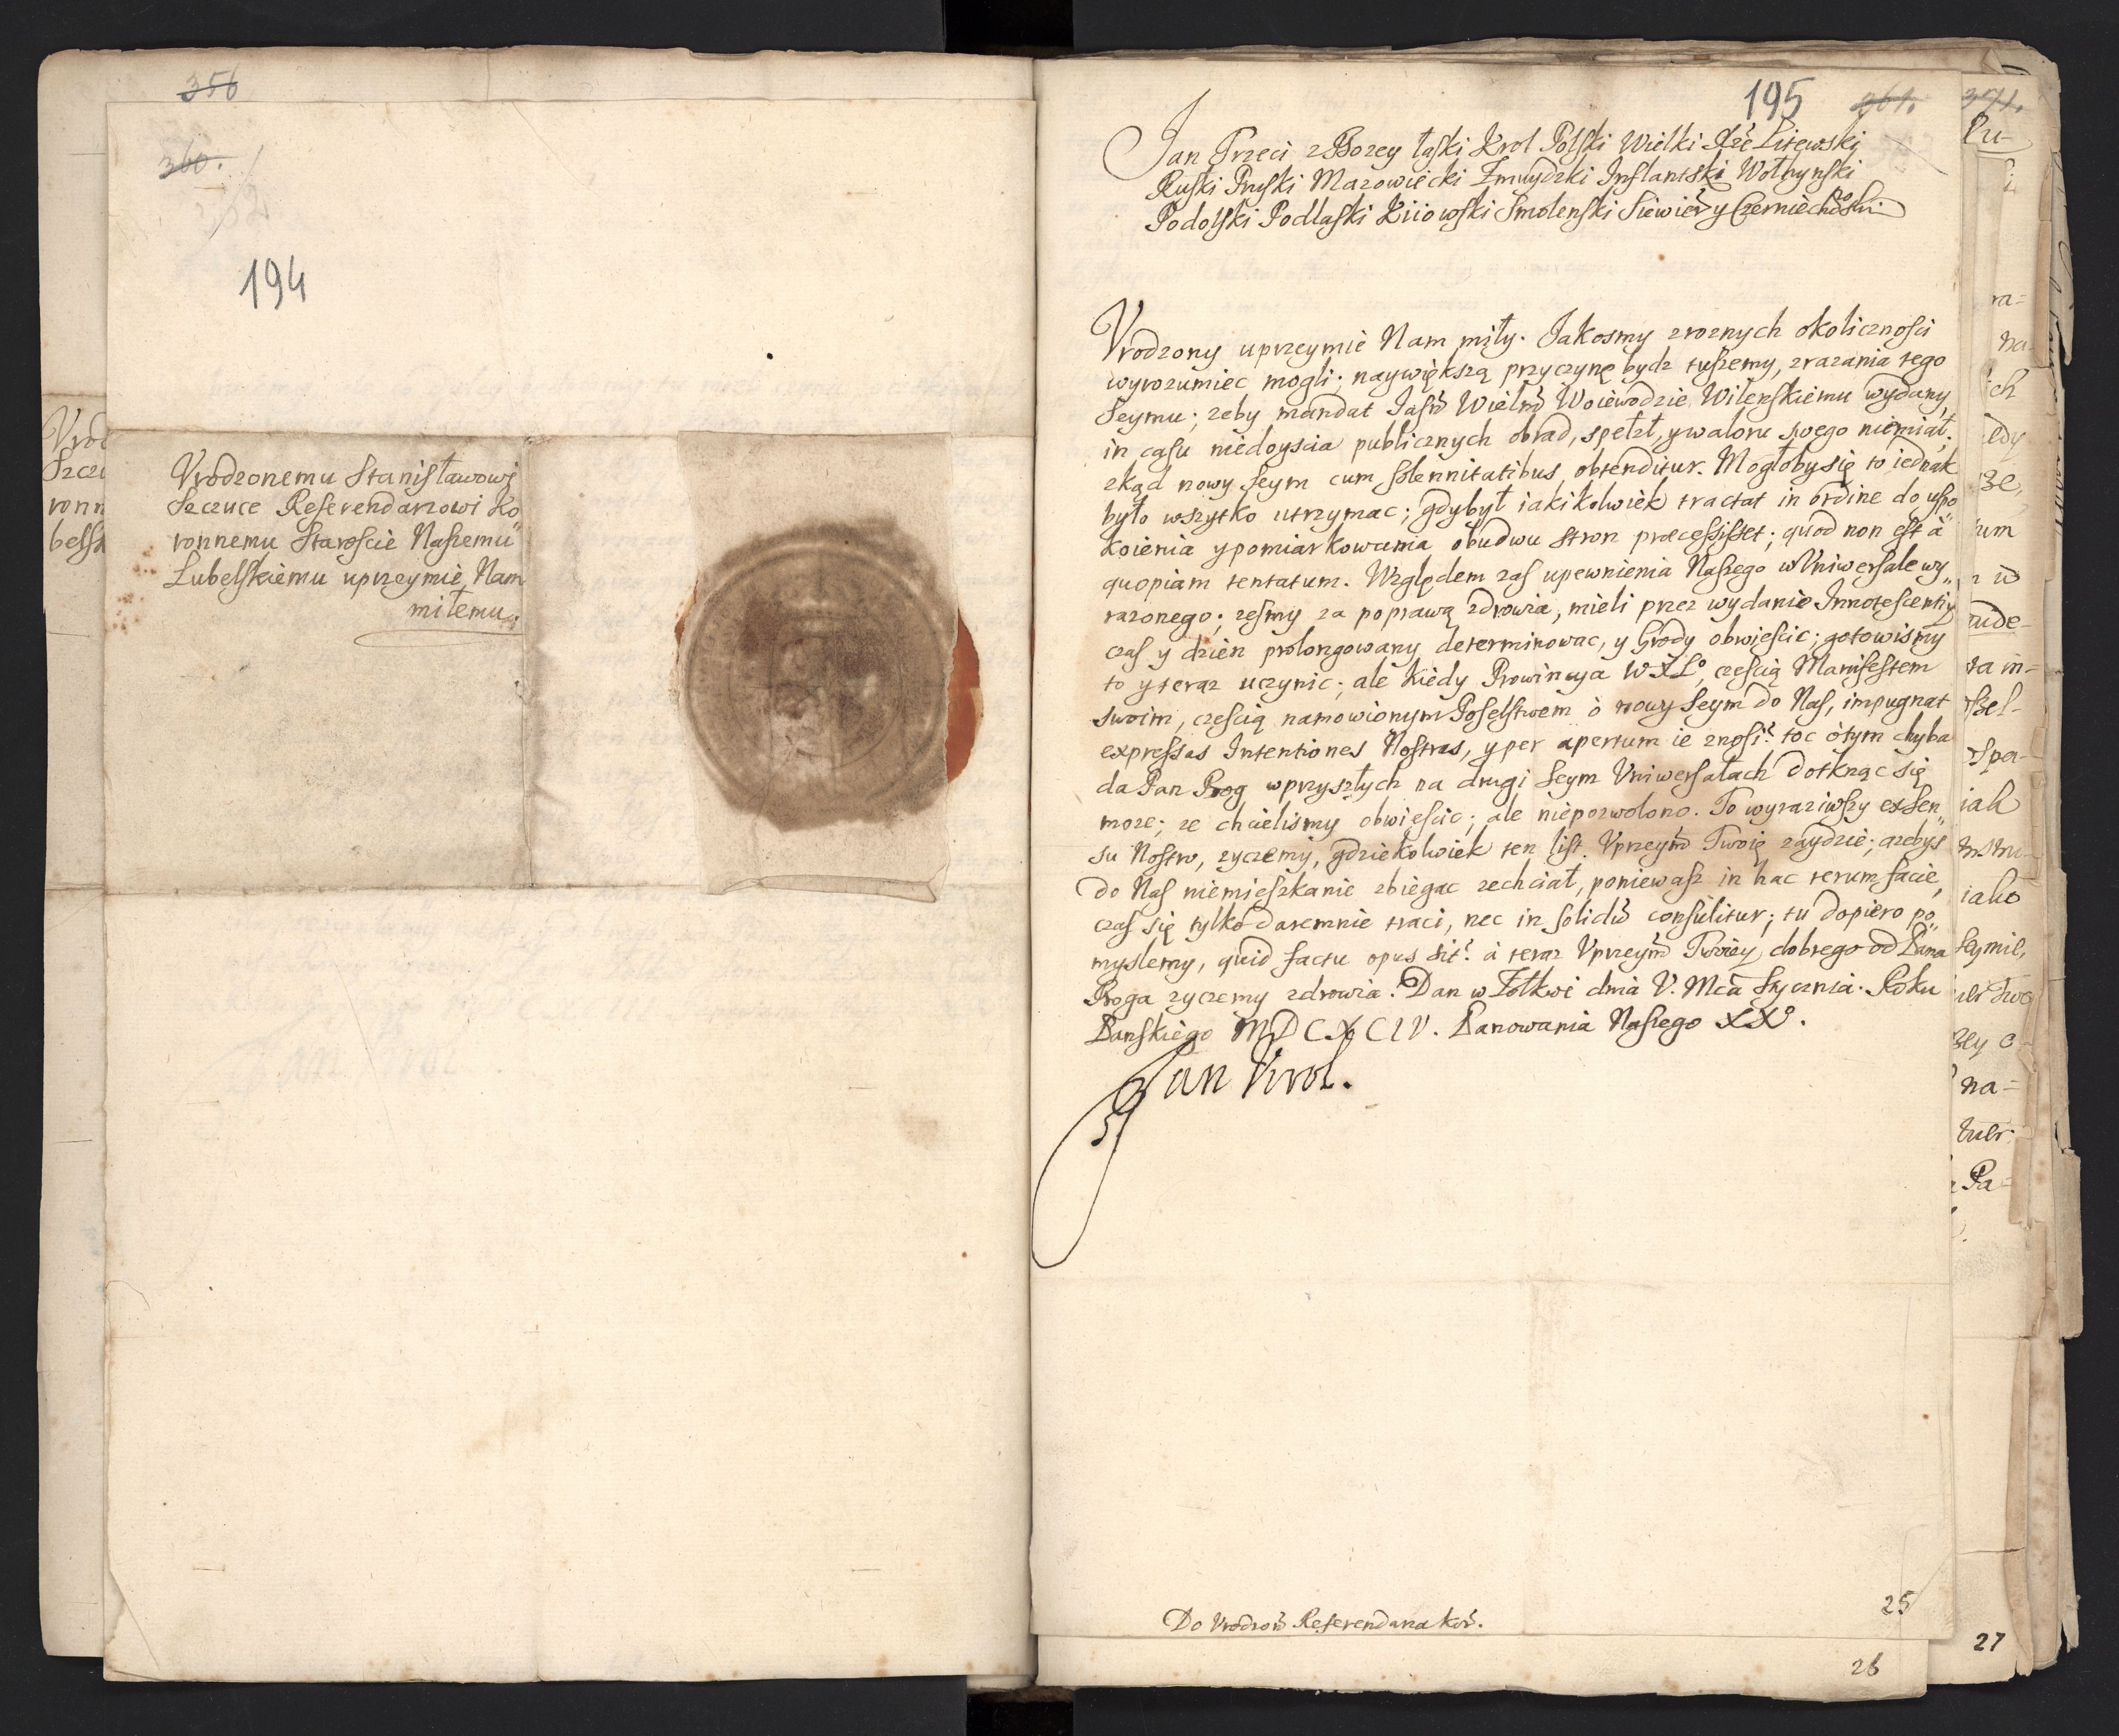 356
360.
194
Vrodzonemu Stanisławowi
Szczuce Referendarzowi Ko„
ronnemu Staroście Naszemu
Lubelskiemu uprzeymie Nam
miłemu.
195 361.
Jan Trzeci z Bozey łaski Krol Polski Wielki Xżė Litewski
Ruski Pruski Mazowiecki Zmuydzki Inflantski Wołhynski
Podolski Podlaski Kiiowski Smolenski Siewier y Czerniechowski
Vrodzony uprzeymie Nam miły. Jakosmy zroznych okolicznosci
wyrozumiec mogli; naywiększą przyczynę bydz tuszemy, zrazania tego
Seymu; zeby mandat Jasń Wielm̃ Woiewodzie Wilenskiemu wydany,
in casu niedoyscia publicznych obrad, spełzł, y waloru swego niemiał.
zkąd nowy Seym cum solennitatibus obtenditur. Mogłoby się to iednak
było wszytko utrzymac; gdybył iakikolwiek tractat in ordine do uspo„
koienia y pomiarkowania obudwu stron præcessisset; quod non est à
quopiam tentatum. Względem zas upewnienia Naszego w Vniwersale wy„
razonego; zesmy za poprawą zdrowia, mieli przez wydanie Innotescentiy
czas y dzien prolongowany determinowac, y Grody obwiescic; gotowismy
to y teraz uczynic; ale kiedy Prowincya WXLº, częscią Manifestem
swoim, częscią namowionym Poselstwem ò nowy Seym do Nas, impugnat
expressas Intentiones Nostras, y per apertum ie znosi: toc ótym chyba
da Pan Bog w przyszłych na drugi Seym Vniwersałach dotknąc się
moze; ze chcielismy obwiescic; ale niepozwolono. To wyraziwszy ex sen„
su Nostro, zyczemy, gdziekolwiek ten list Vprzeym̃ Twoię zaydzie; azebys
do Nas niemieszkanie zbiegac zechciał, poniewasz in hac rerum facie,
czas się tylko daremnie traci, nec in solidũ consulitur; tu dopiero po„
myslemy, quid factu opus sit: à teraz Vprzeym̃ Twoiey dobrego od Pana
Boga zyczemy zdrowia. Dan w Zołkwi dnia V. Mcã Stycznia. Roku
Panskiego MDCXCIV. Panowania Naszego XXº.
Jan Krol.
Do Vrodzoň Referendarza koř.
25
26
27
371.